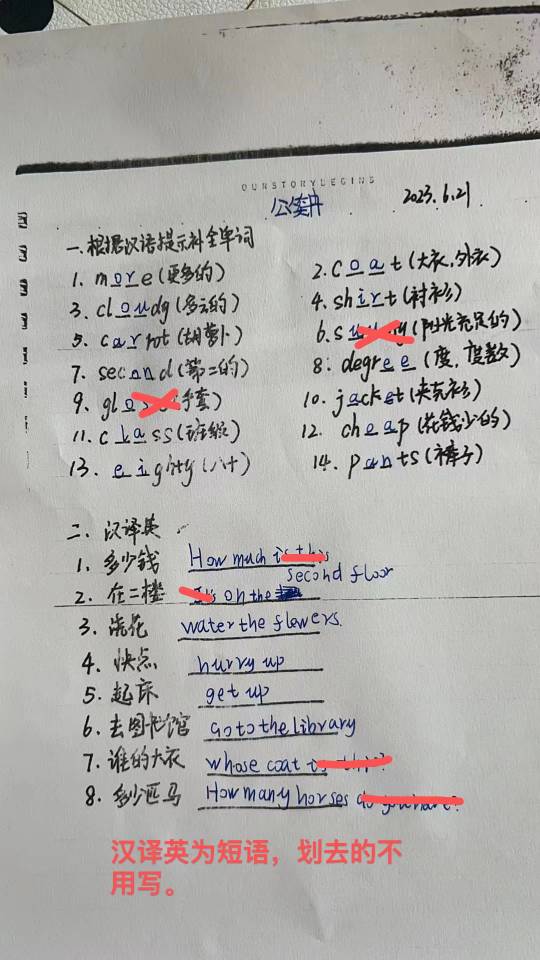 OUNSTORYBEGINS
2023.6.21
一.根据汉语提示补全单词
1. more (更多的)
2. coat (大衣,外衣)
3. cloudy (多云的)
4. shirt (衬衫)
5. carrot (胡萝卜)
6. s (阳光充足的)
7. second (第二的)
8. degree (度,度数)
9. glo (手套)
10. jacket (夹克衫)
11. class (班级)
12. cheap (花钱少的)
13. eighty (八十)
14. pants (裤子)
二、汉译英
1. 多少钱 How much is this
second floor
2. 在二楼 on the
3. 浇花 water the flowers.
4. 快点 hurry up
5. 起床 get up
6. 去图书馆 go to the library
7. 谁的大衣 whose coat is this?
8. 多少匹马 How many horses do you have?
汉译英为短语，划去的不
用写。